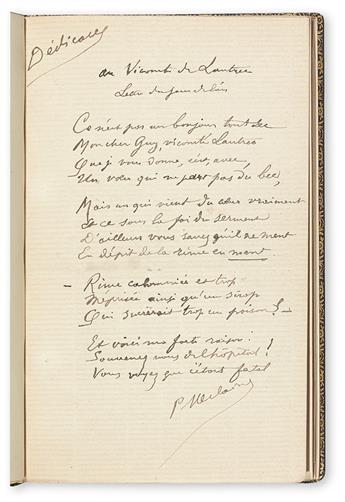 Dédicaces
au Vicomte de Lautrec
Ce n'est pas un bonjour tout sec
Mon cher Guy, vicomte Lautrec
Que j' vous donne, c'est, avec,
Un vœu qui ne part pas du bec,
Mais un qui vient du cœur vraiment
Et ce sous la foi du serment
D'ailleurs vous savez qu'il ne ment
En dépit de la rime en ment
— Rime calomniée et trop
Méprisée ainsi qu'un sirop
Qui sucrerait trop un poison ! —
Et voici ma forte raison :
Souvenez vous de l'hôpital !
Vous voyez que c'était fatal
P. Verlaine